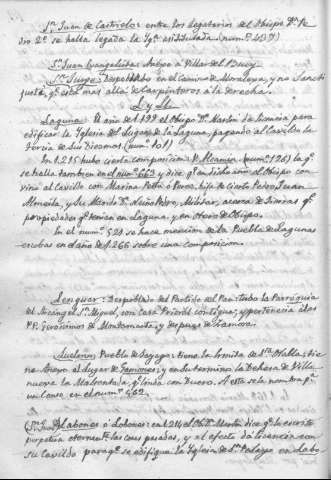 Sn. Juan de Castrelos: entre los legatarios del Obispo Dn. Pe
dro 2º se halla legada la Yga. asi titulada (num.º 437)
Sn. Juan Evangelista: Anejo a Villar del Buey
Despoblado en el camino de Moraleja, y no Sancti
este mas alla de Carpinteros a la derecha.
L y Ll.
Laguna: El año de 1199 el Obispo Dn. Martin dá licencia para
edificar la Iglesia del Lugar de la Laguna, pagando al Cavildo la
tercia de sus Diezmos (num.º 101)
En 1215 hubo cierta composicion de (num.º 126) la qe.
se halla tambien en el num.º 663 y dice qe. en dicho año el Obispo con
vino al Cavildo con Marina Petri o Perez, hija de cierto Pedro Juan
Almeida, y su Marido Dn. Nuño Petro, Militar, acerca de ciertas
propiedades qe. tenian en Laguna, y en otros
En el num.º 521 se hace mencion de la Puebla de Lagunas
en el año de 1266 sobre una composicion.
Lenguar: Despoblado del Partido del Pan: tubo la Parroquia
de Arcángel Sn. Miguel, con casa Prioral contigua, y pertenecia a los
PP. Geronimos de Montamarta, y despues de Zamora.
Luelmo: Pueblo de Sayago: tiene la hermita de Sta. Olalla; tie
ne Anejo el Lugar de Gamones; y en su termino la Dehesa de Villa
nueva la Malcontada, qe. linda con Duero. A esta se la nombra
en el num.º 662.
Llabones ó Lobones: en 1214 el Obº. Dn. Martin dice qe. la escrito
perpetua eternente. las cosas pasadas, y al efecto dá licencia con
su Cavildo para qe. se edifique la Yglesia de Sn. Pelayo en Labo